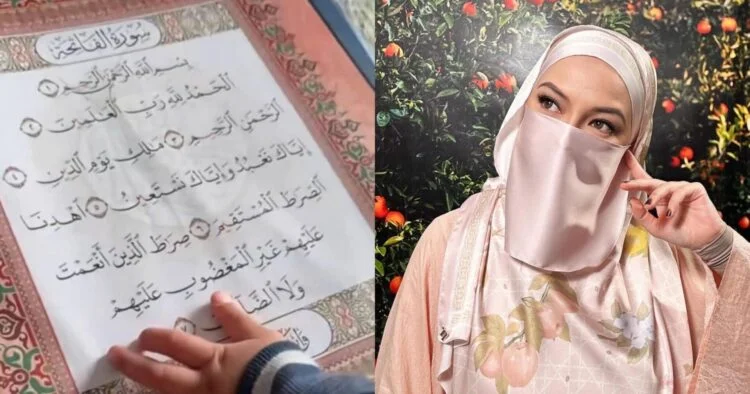 سُورَةُ الْفَاتِحَةِ
بِسْمِ اللَّهِ الرَّحْمَٰنِ الرَّحِيمِ ١
الْحَمْدُ لِلَّهِ رَبِّ الْعَٰلَمِينَ ٢
الرَّحْمَٰنِ الرَّحِيمِ ٣ مَٰلِكِ يَوْمِ الدِّينِ ٤
إِيَّاكَ نَعْبُدُ وَإِيَّاكَ نَسْتَعِينُ ٥ اهْدِنَا
الصِّرَٰطَ الْمُسْتَقِيمَ ٦ صِرَٰطَ الَّذِينَ أَنْعَمْتَ
عَلَيْهِمْ غَيْرِ الْمَغْضُوبِ عَلَيْهِمْ
وَلَا